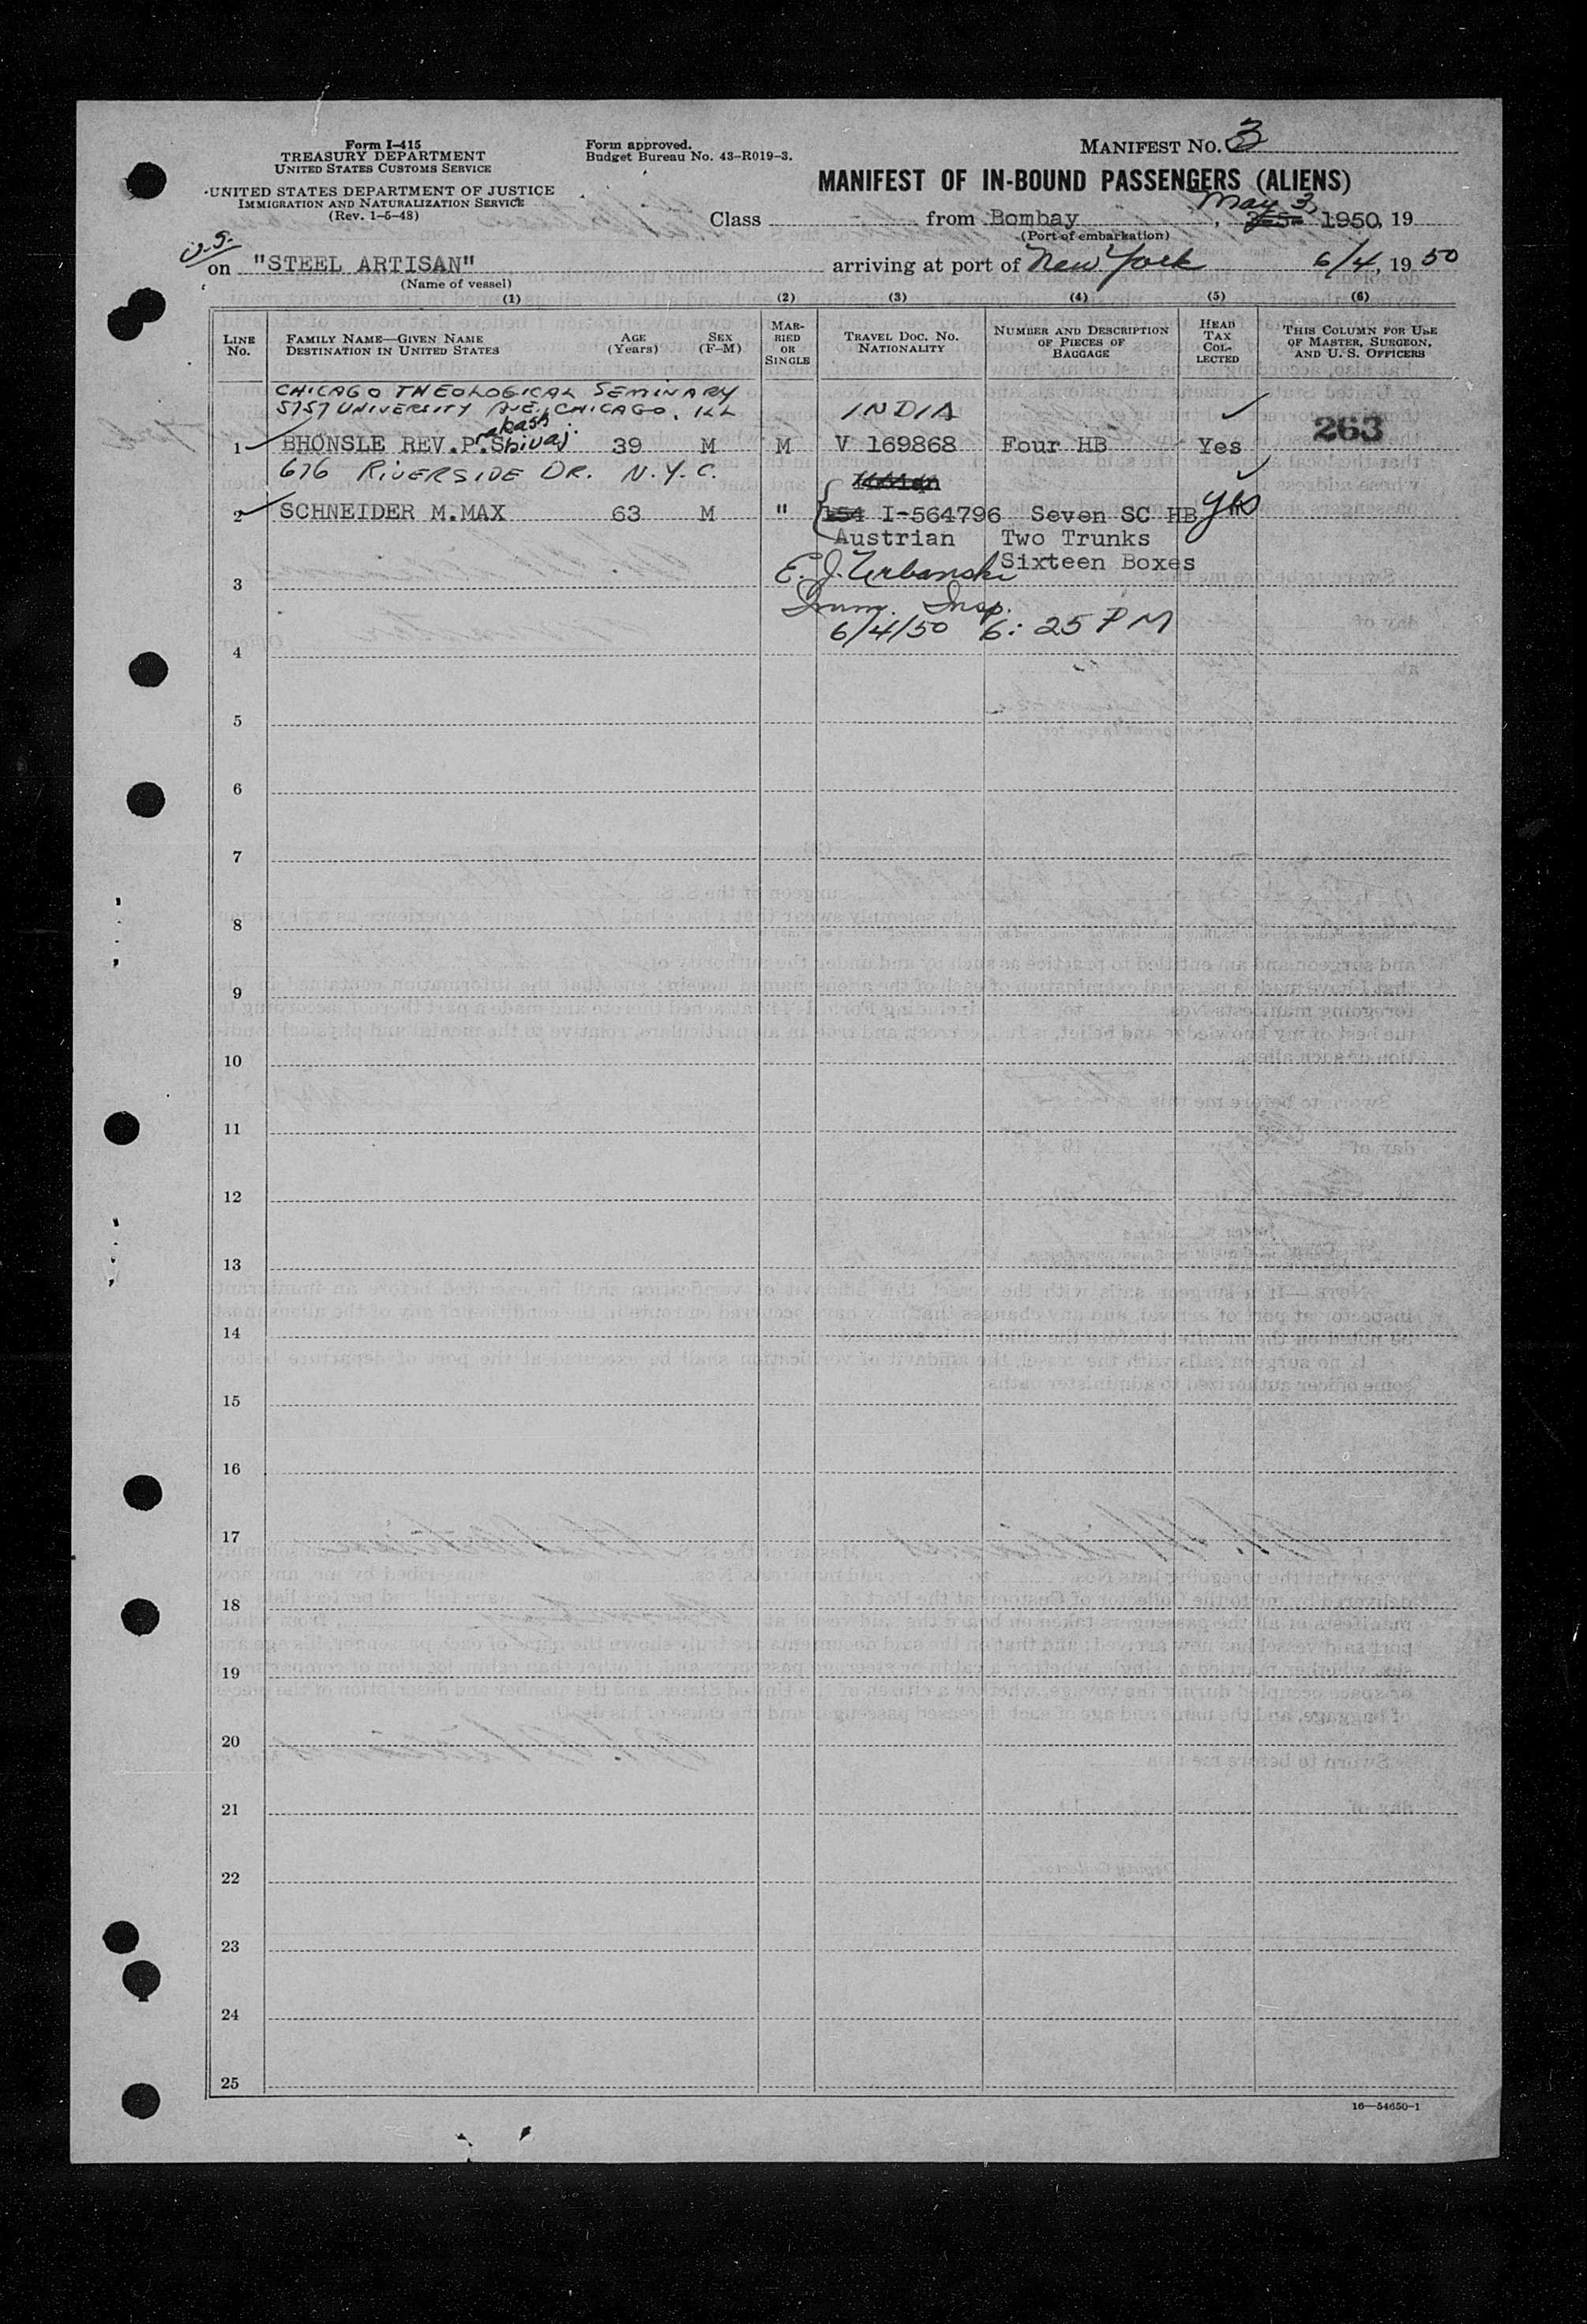 Form I-415
TREASURY DEPARTMENT
UNITED STATES CUSTOMS SERVICE
UNITED STATES DEPARTMENT OF JUSTICE
IMMIGRATION AND NATURALIZATION SERVICE
(Rev. 1-5-48)
Form approved.
Budget Bureau No. 43-R019-3.
MANIFEST NO. 3
MANIFEST OF IN-BOUND PASSENGERS (ALIENS)
Class from Bombay, May 3, 1950, 19
(Port of embarkation)
on "STEEL ARTISAN" arriving at port of New York 6/4, 1950
(Name of vessel)
(1) (2) (3) (4) (5) (6)
LINE No. FAMILY NAME—GIVEN NAME DESTINATION IN UNITED STATES AGE (Years) SEX (F-M) MARRIED OR SINGLE TRAVEL DOC. NO. NATIONALITY NUMBER AND DESCRIPTION OF PIECES OF BAGGAGE HEAD TAX COLLECTED THIS COLUMN FOR USE OF MASTER, SURGEON, AND U. S. OFFICERS
CHICAGO THEOLOGICAL SEMINARY
5757 UNIVERSITY AVE. CHICAGO, ILL INDIA
1 BHONSLE REV. P.rakash Shivaji 39 M M V 169868 Four HB Yes 263
676 RIVERSIDE DR. N.Y.C.
2 SCHNEIDER M.MAX 63 M " I-564796 Seven SC HB yes
Austrian Two Trunks
Sixteen Boxes
3 E. J. Urbanski
Imm. Insp.
6/4/50 6:25 PM
4
5
6
7
8
9
10
11
12
13
14
15
16
17
18
19
20
21
22
23
24
25
16—54650-1